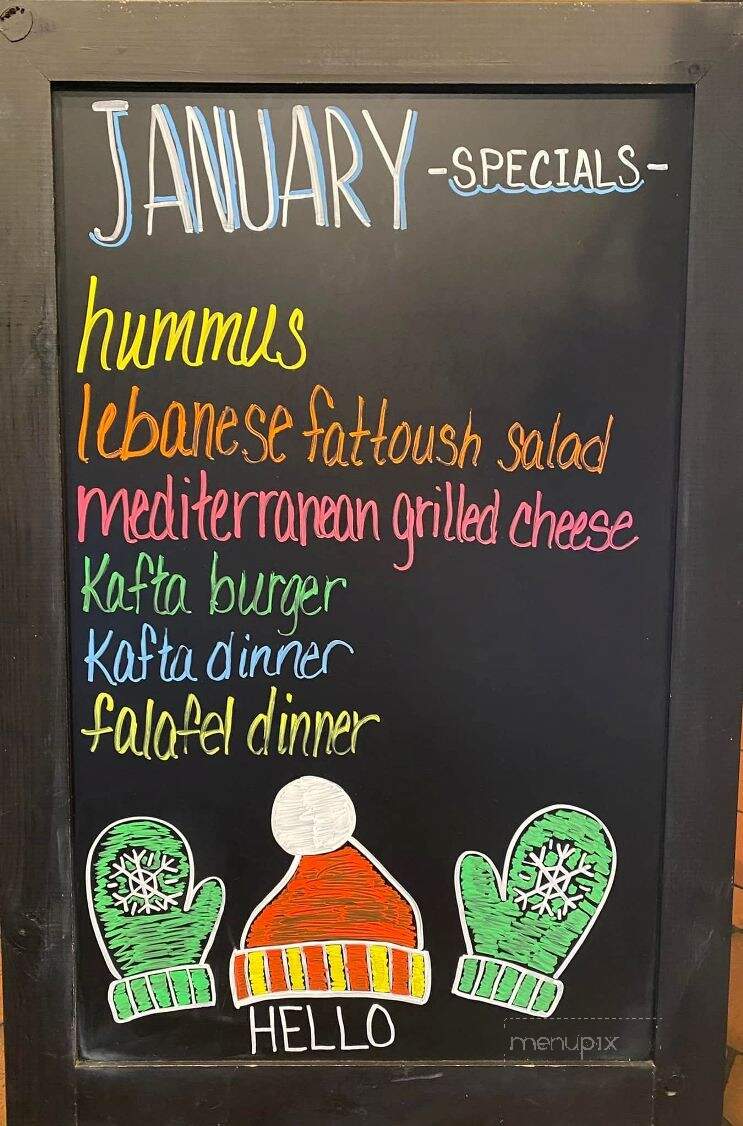 JANUARY -SPECIALS-
hummus
lebanese fattoush salad
mediterranean grilled cheese
Kafta burger
Kafta dinner
falafel dinner
HELLO
menupix